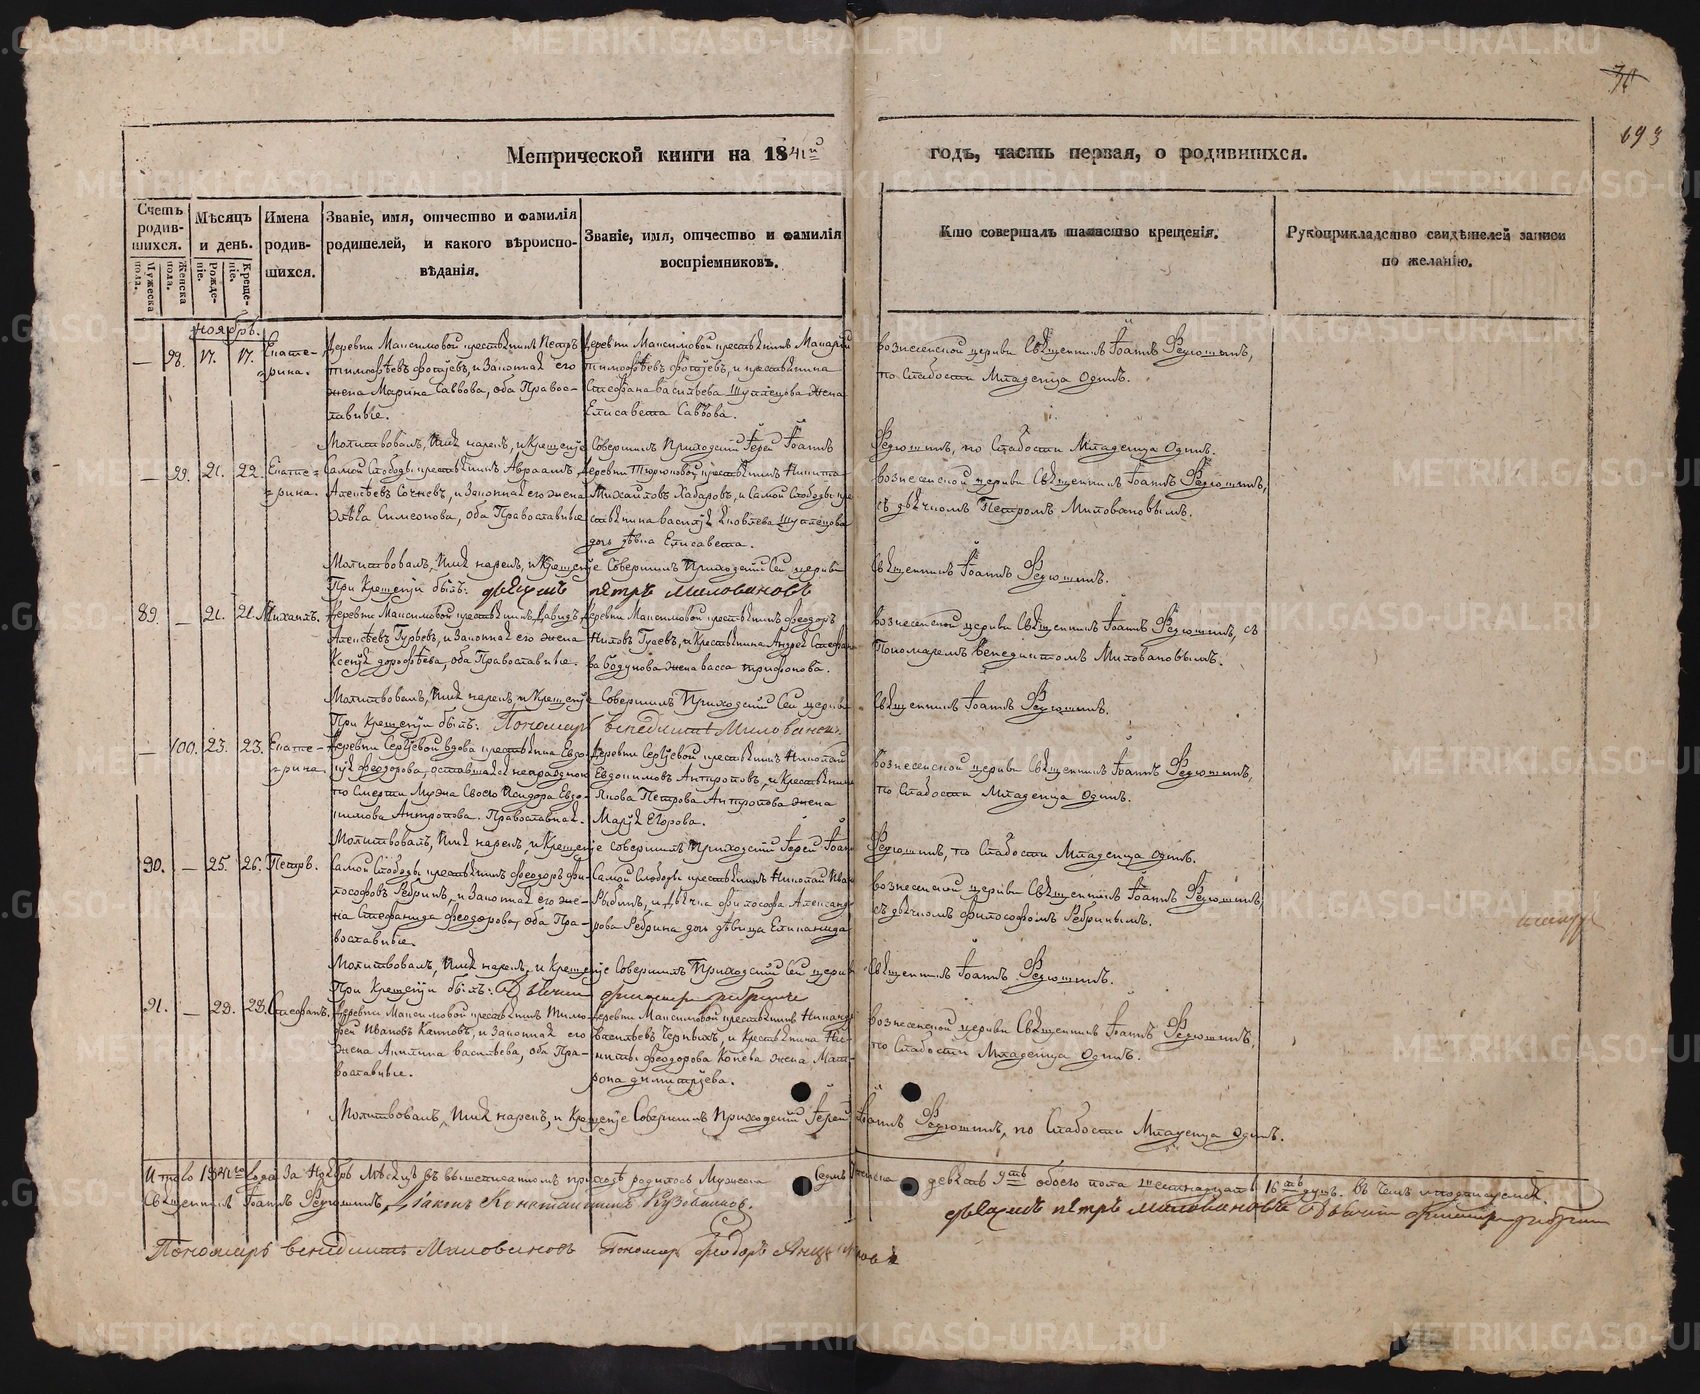 693
Метрической книги на 1841й годъ, часть первая, о родившихся.
Счетъ родив-шихся.
Мужеска пола.
Женска пола.
Мѣсяцъ и день.
Рожде-ніе.
Креще-ніе.
Имена родив-шихся.
Званіе, имя, отчество и фамилія родителей, и какого вѣроиспо-вѣданія.
Званіе, имя, отчество и фамилія воспріемниковъ.
Кто совершалъ таинство крещенія.
Рукоприкладство свидѣтелей записи по желанію.
ноябрь.
— 98. 17. 17. Екате-рина.
Деревни Максимовой крестьянинъ Петръ
Тимофѣевъ и Законная его
жена Марина Саввова, оба Правос-
лавные.
Деревни Максимовой крестьянинъ Макарій
Тимофѣевъ и крестьянина
Стефана Васильева жена
Елисавета Саввова.
Вознесенской церкви Священникъ Іоаннъ Федюшинъ,
по Слабости Младенца Одинъ.
Молитвовалъ, Имя нарекъ, и Крещеніе Совершилъ Приходскій Іерей Іоаннъ Федюшинъ, по Слабости Младенца Одинъ.
— 99. 21. 22. Екате-рина.
Самой Слободы крестьянинъ Авраамъ
Алексѣевъ и Законная его жена
Симеонова, оба Православные
Деревни крестьянинъ Никита
Михайловъ Хабаровъ, и Самой Слободы кре-
стьянина
дочь дѣвка Елисавета.
Вознесенской церкви Священникъ Іоаннъ Федюшинъ,
съ дьячкомъ Петромъ Миловановымъ.
Молитвовалъ, Имя нарекъ, и Крещеніе Совершилъ Приходскій Сей церкви Священникъ Іоаннъ Федюшинъ.
При Крещеніи былъ: дьячекъ петръ миловановъ
89. — 21. 21. Михаилъ.
Деревни Максимовой крестьянинъ Давидъ
Алексѣевъ Гурьевъ, и Законная его жена
Ксенія Дорофѣева, оба Православные.
Деревни Максимовой крестьянинъ Феодоръ
Ниловъ Гусевъ, и Крестьянина Андрея Стефано-
ва жена Васса Трифонова.
Вознесенской церкви Священникъ Іоаннъ Федюшинъ, съ
Пономаремъ Венедиктомъ Миловановымъ.
Молитвовалъ, Имя нарекъ, и Крещеніе Совершилъ Приходскій Сей церкви Священникъ Іоаннъ Федюшинъ.
При Крещеніи былъ: Пономарь Венедиктъ Миловановъ.
— 100. 23. 23. Екате-рина.
Деревни Сергуевой вдова крестьянка Евдо-
кія Феодорова, оставшаяся непраздною
по Смерти Мужа Своего Исидора Евдо-
кимова Антропова. Православная.
Деревни Сергуевой крестьянинъ Николай
Евдокимовъ Антроповъ, и Крестьянина
Якова Петрова Антропова жена
Марія Егорова.
Вознесенской церкви Священникъ Іоаннъ Федюшинъ,
по Слабости Младенца Одинъ.
Молитвовалъ, Имя нарекъ, и Крещеніе совершилъ Приходскій Іерей Іоаннъ Федюшинъ, по Слабости Младенца Одинъ.
90. — 25. 26. Петръ.
Самой Слободы крестьянинъ Феодоръ Фи-
лософовъ Ребринъ, и Законная его же-
на Стефанида Феодорова, оба Пра-
вославные.
Самой Слободы крестьянинъ Николай
и Дьячка Философа Александ-
рова Ребрина дочь дѣвица
Вознесенской церкви Священникъ Іоаннъ Федюшинъ,
съ дьячкомъ Философомъ Ребринымъ.
Молитвовалъ, Имя нарекъ, и Крещеніе Совершилъ Приходскій Сей церкви Священникъ Іоаннъ Федюшинъ.
При Крещеніи былъ: Дьячекъ
91. — 29. 29. Стефанъ.
Деревни Максимовой крестьянинъ Тимо-
фей Ивановъ и Законная его
жена Акилина Васильева, оба Пра-
вославные.
Деревни Максимовой крестьянинъ Никандръ
Васильевъ Черныхъ, и Крестьянина Ни-
киты Феодорова Копева жена Мат-
рона Димитріева.
Вознесенской церкви Священникъ Іоаннъ Федюшинъ,
по Слабости Младенца Одинъ.
Молитвовалъ, Имя нарекъ, и Крещеніе Совершилъ Приходскій Іерей Іоаннъ Федюшинъ, по Слабости Младенца Одинъ.
Итого 1841го Года За Ноябрь Мѣсяцъ въ вышеписанномъ приходѣ родилось Мужеска Семь Женска девять 9ть обоего пола шестнадцать 16ть душъ. Въ чемъ и подписуемся.
Священникъ Іоаннъ Федюшинъ, Діаконъ Константинъ Кузовниковъ. дьячекъ петръ миловановъ Дьячекъ
Пономарь Венедиктъ Миловановъ Пономарь Феодоръ
METRIKI.GASO-URAL.RU